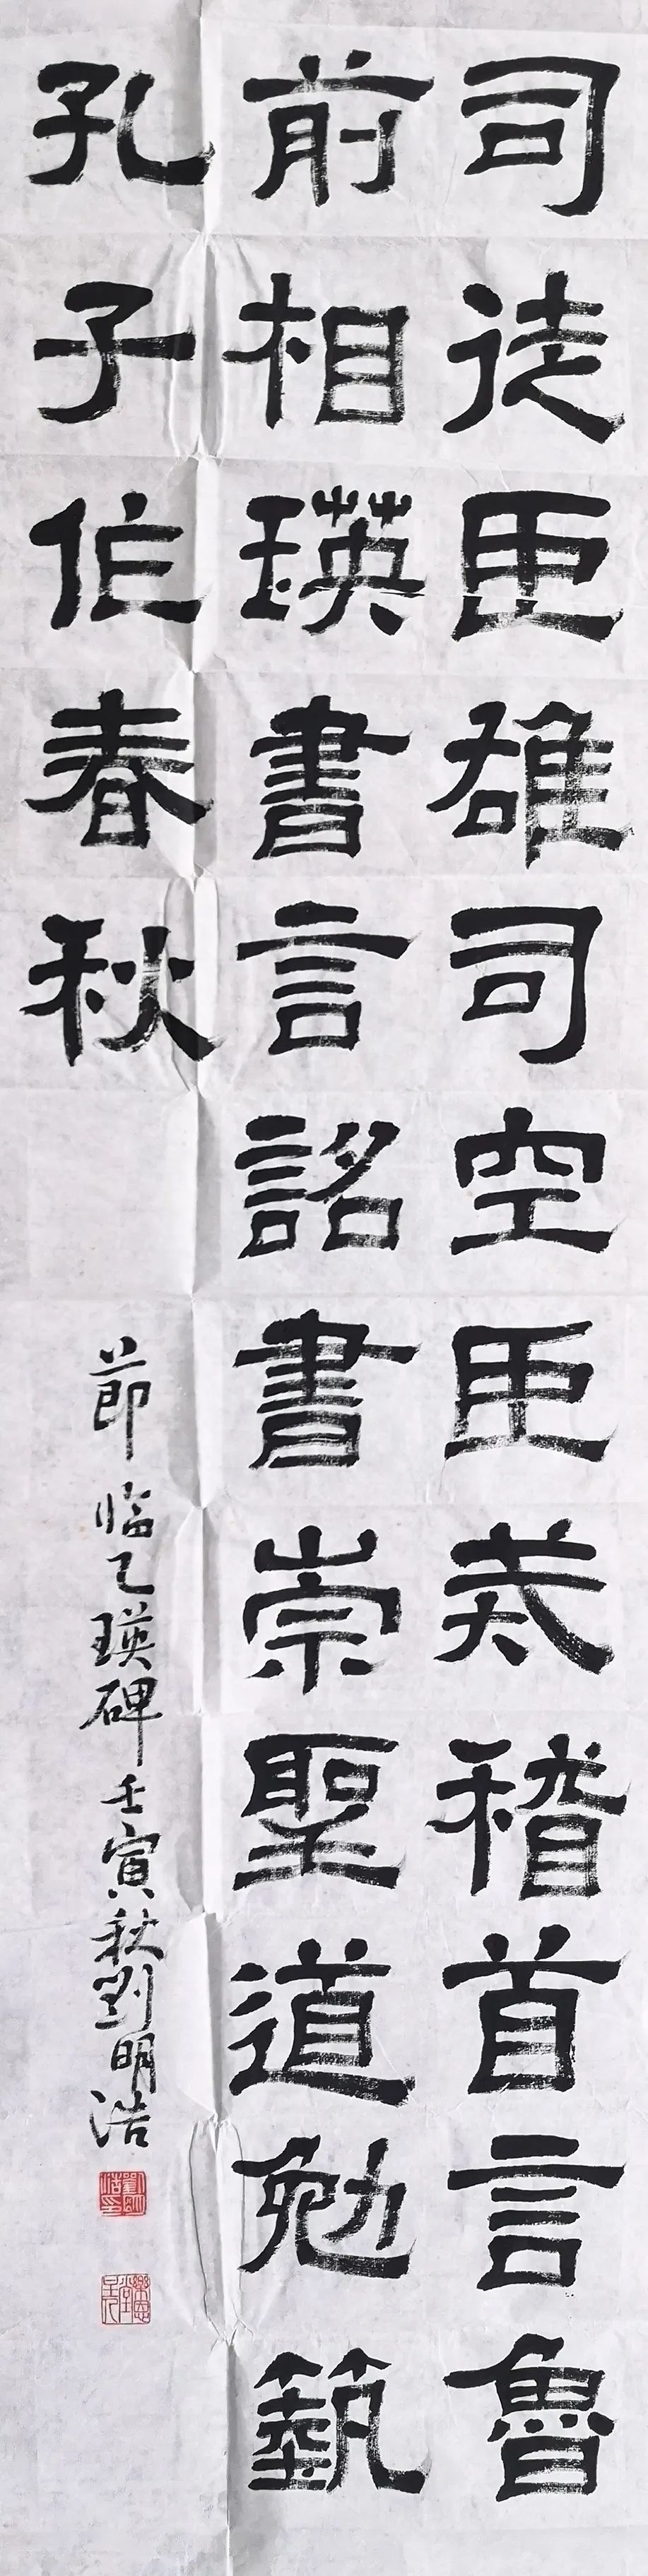 司徒臣雄司空臣戒稽首言魯
前相瑛書言詔書崇聖道勉藝
孔子作春秋
節临乙瑛碑壬寅秋劉明浩
劉明浩印